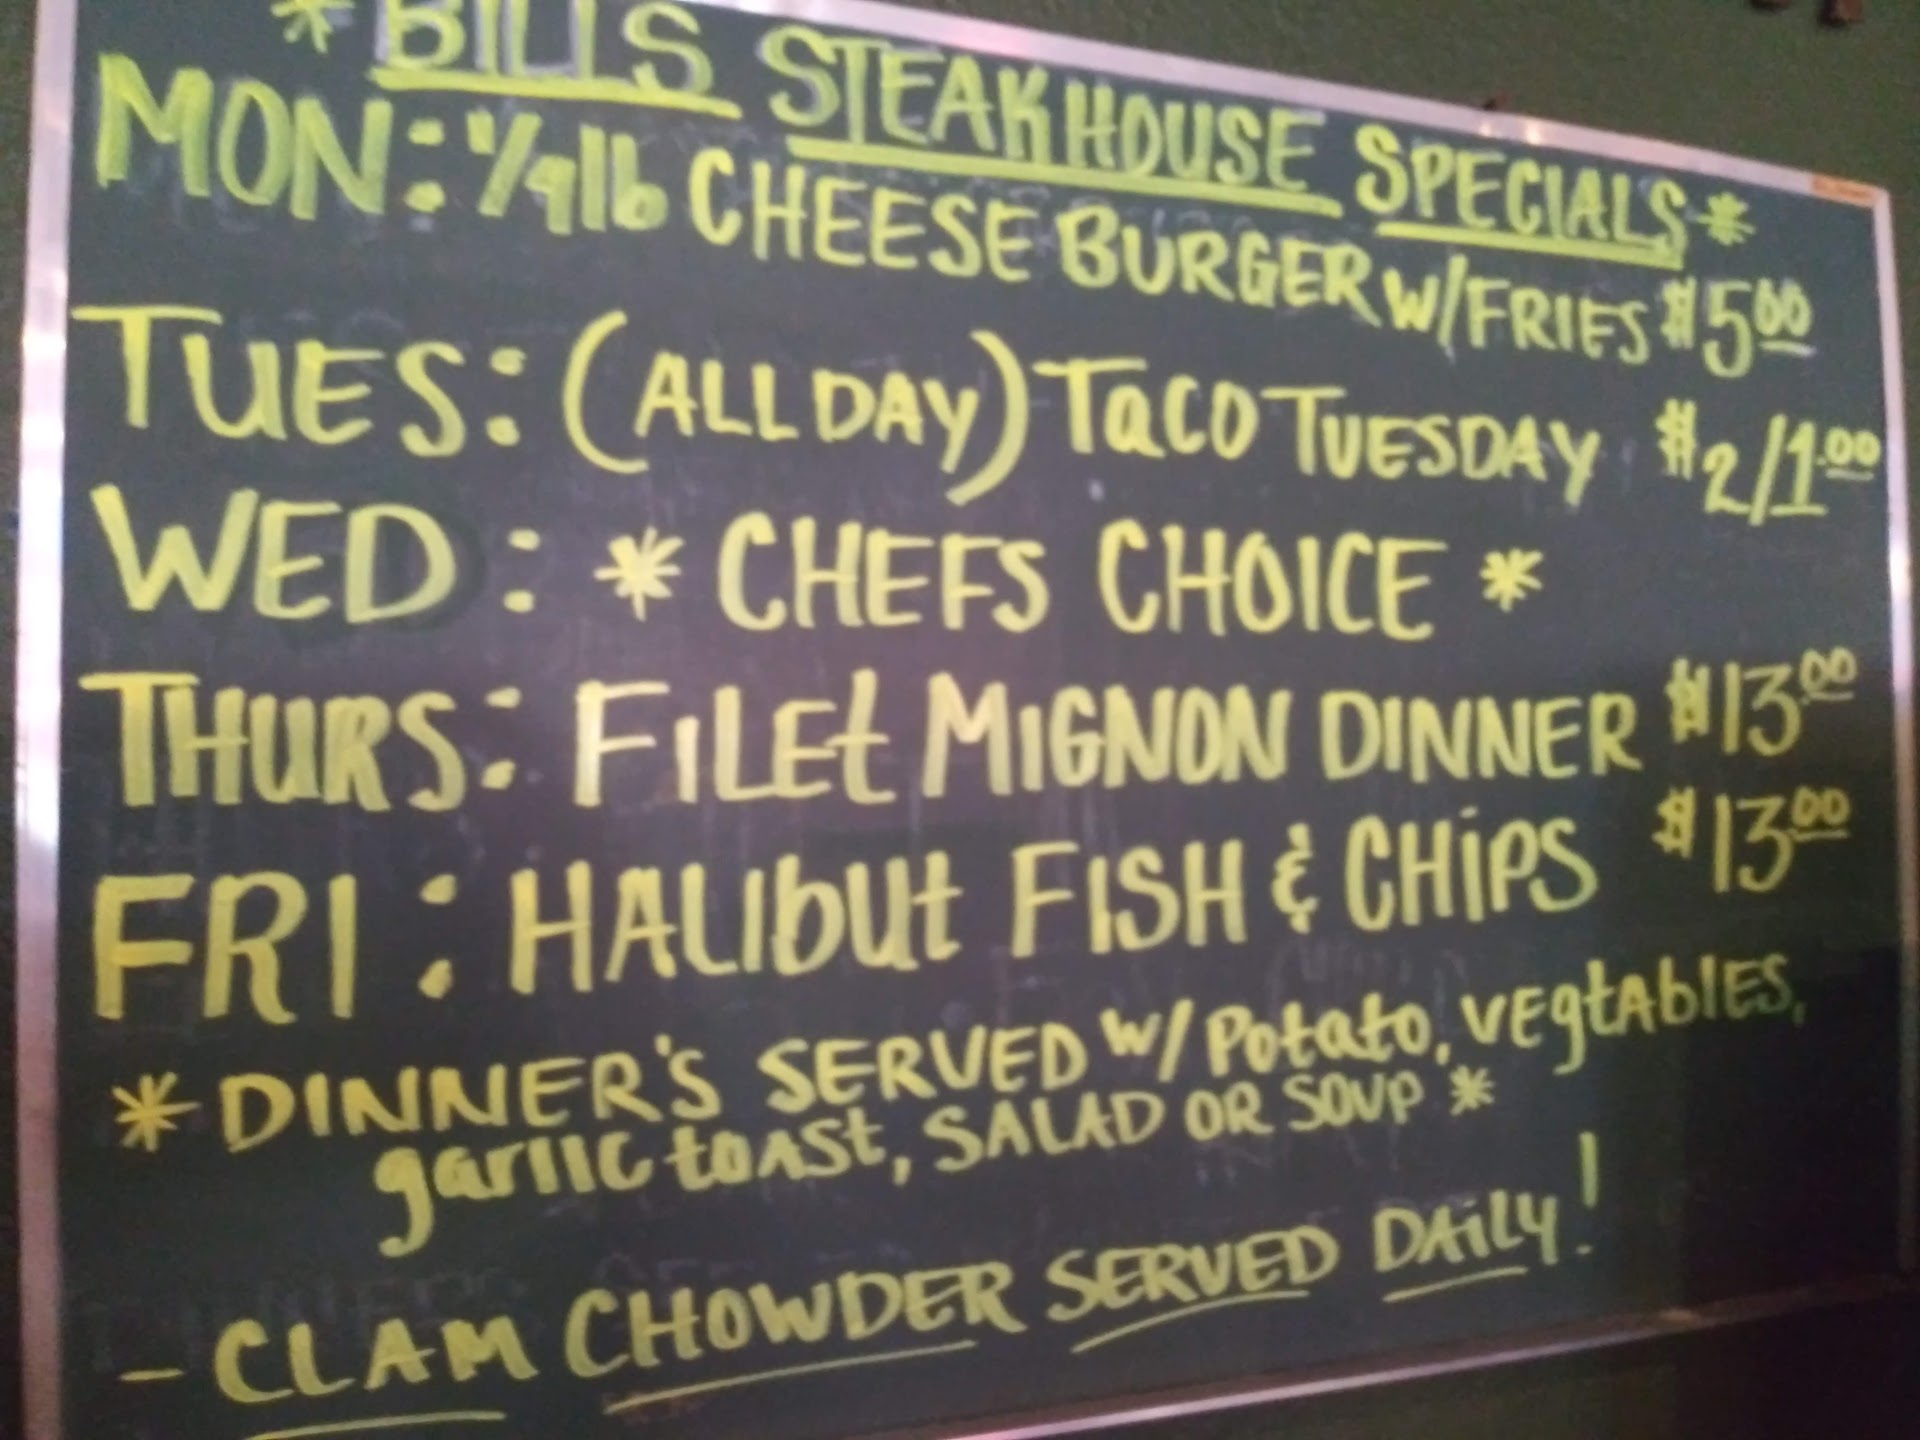 *BILLS STEAKHOUSE SPECIALS*
MON: 1/4lb CHEESE BURGER W/FRIES $5.00
TUES: (ALL DAY) TACO TUESDAY $2/1.00
WED: * CHEFS CHOICE *
THURS: FILEt MIGNON DINNER $13.00
FRI: HALIbUt FISH & CHiPS $13.00
*DINNER'S SERVED W/ Potato, VEgtAblES,
garlic toast, SALAD OR SOUP *
- CLAM CHOWDER SERVED DAiLy!